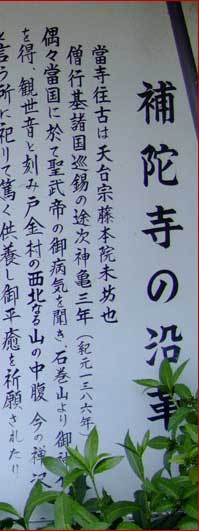 補陀寺の沿革
當寺往古は天台宗藤本院末坊也
僧行基諸国巡錫の途次神亀三年（紀元一三八六年
偶々當国に於て聖武帝の御病気を聞き、石巻山より御神
を得、観世音と刻み戸金村の西北なる山の中腹 今の禅
と言う所に祀りて篤く供養し御平癒を祈願されたり